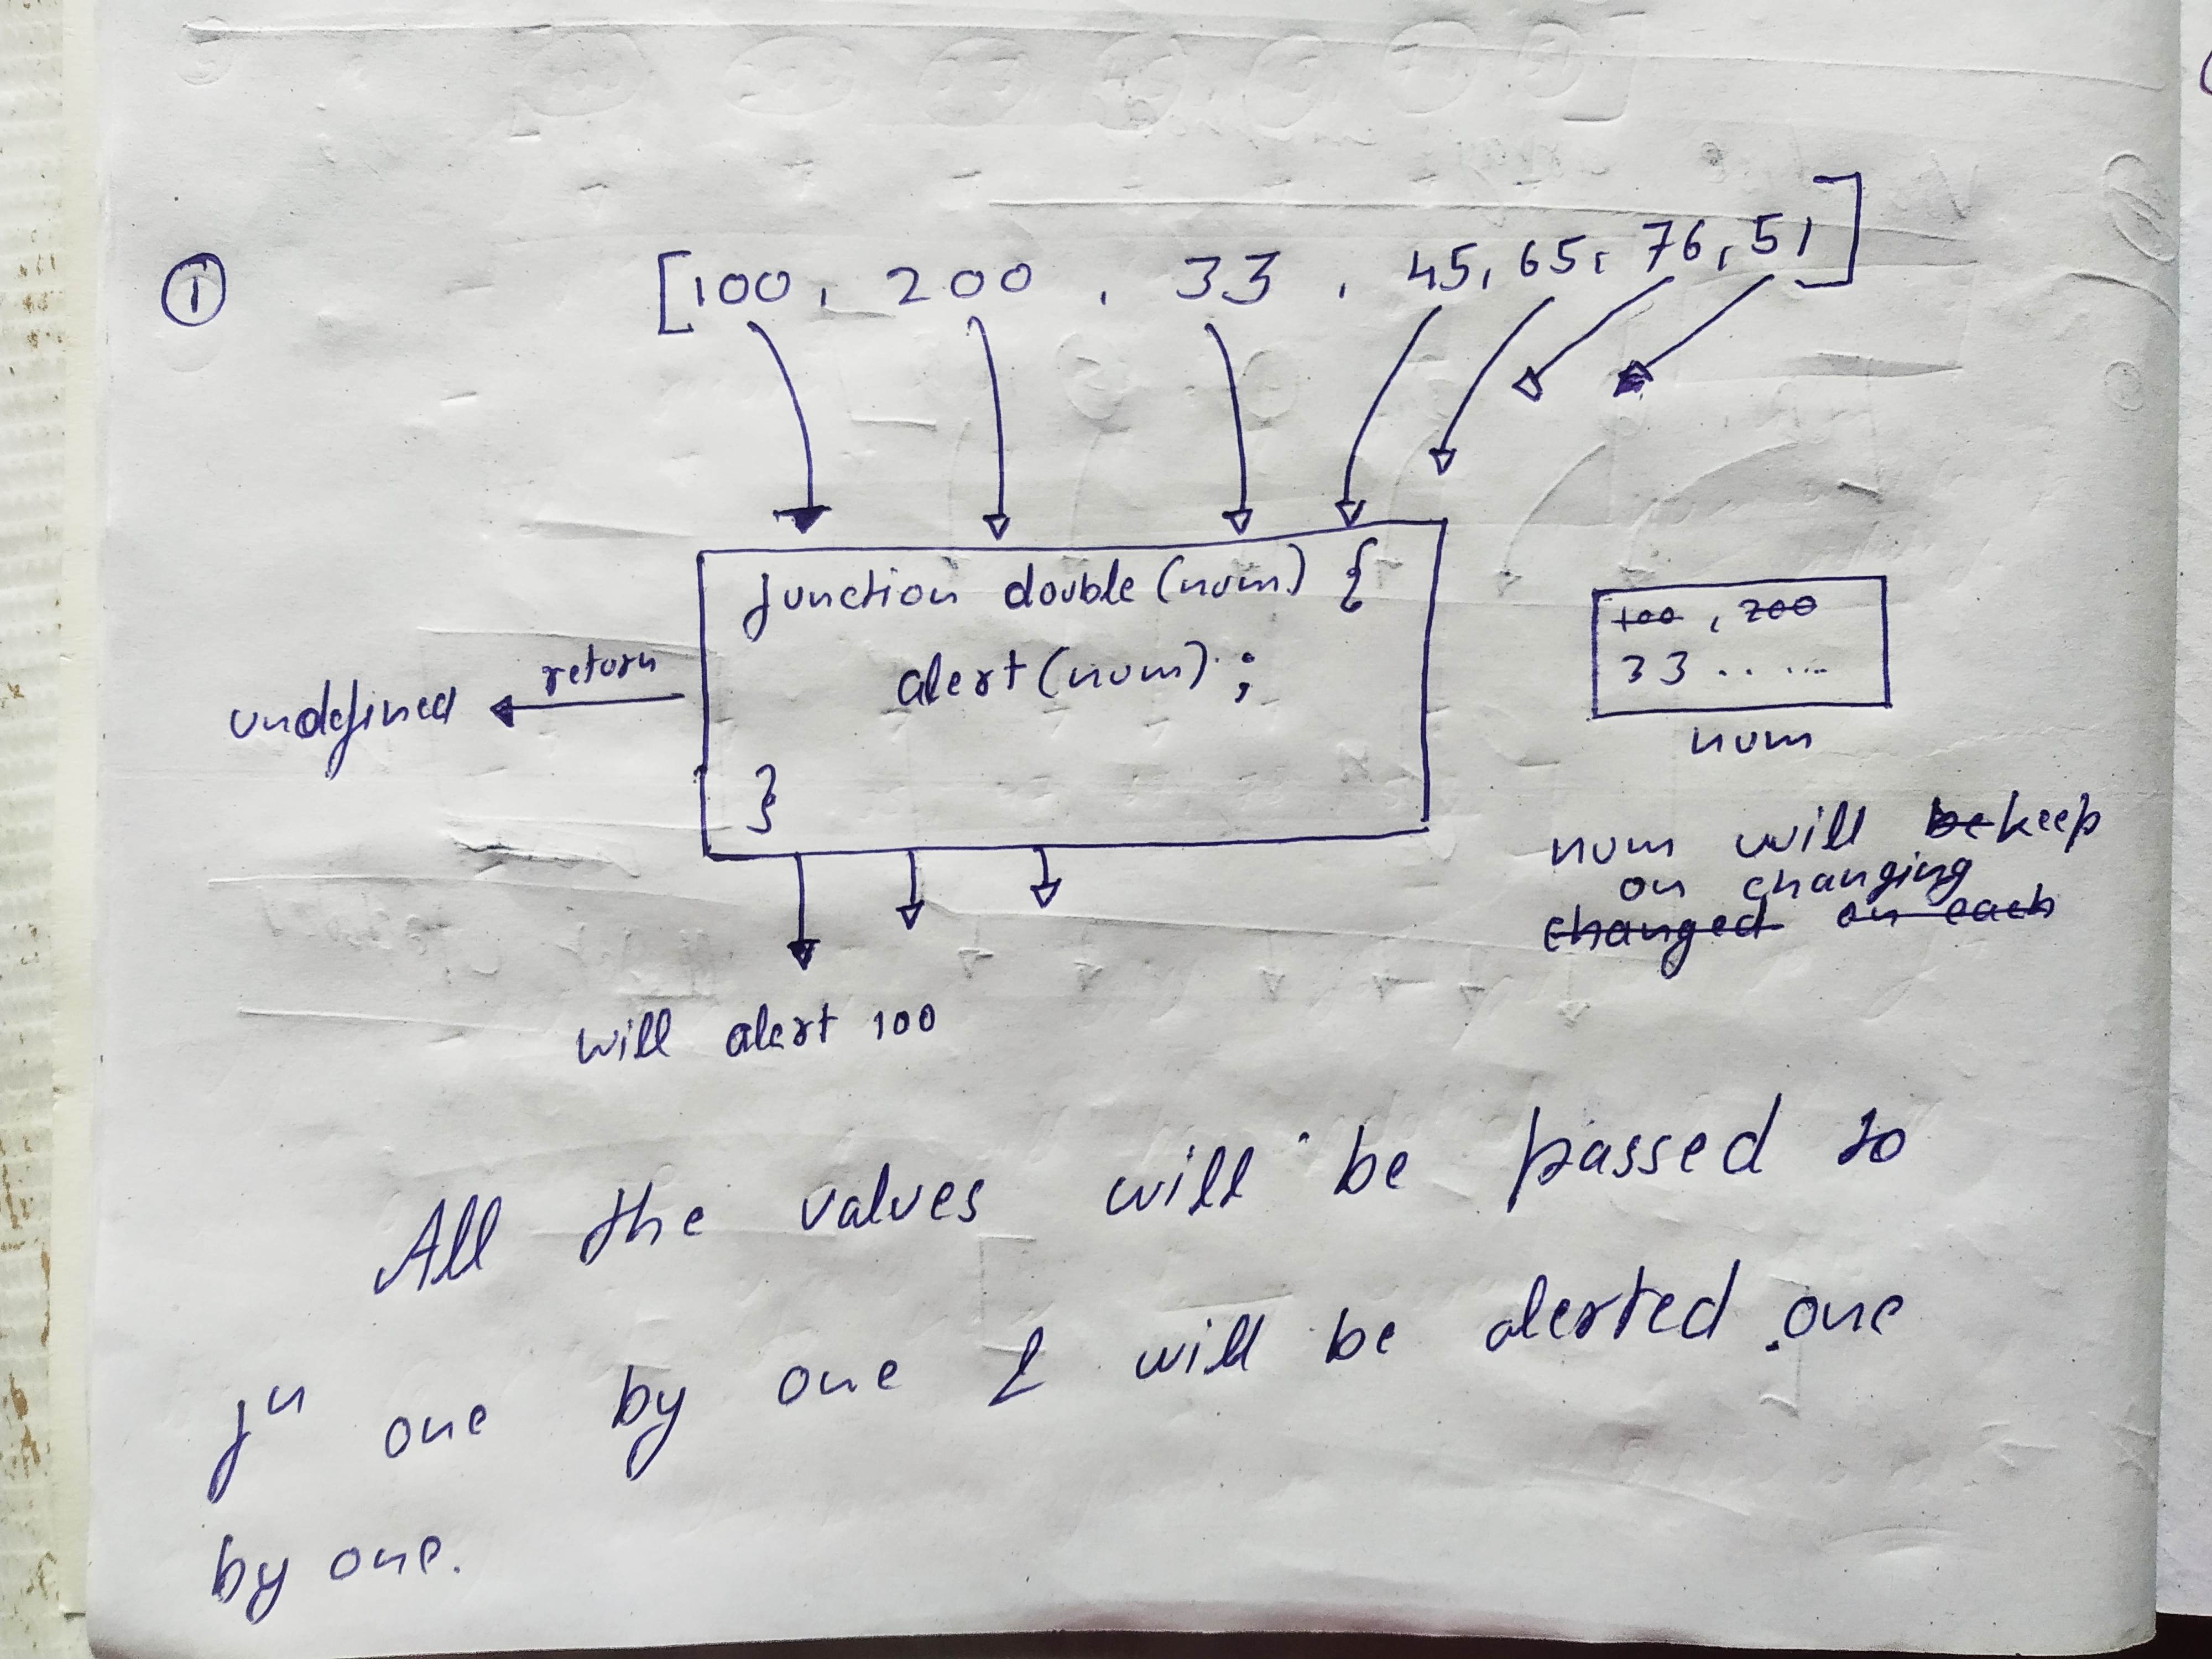 ①
[100, 200, 33, 45, 65, 76, 51]
function double(num) {
alert(num);
}
return
undefined
will alert 100
100, 200
33 . . . ..
num
num will be keep
on changing
changed on each
All the values will be passed to
fn one by one & will be alerted one
by one.